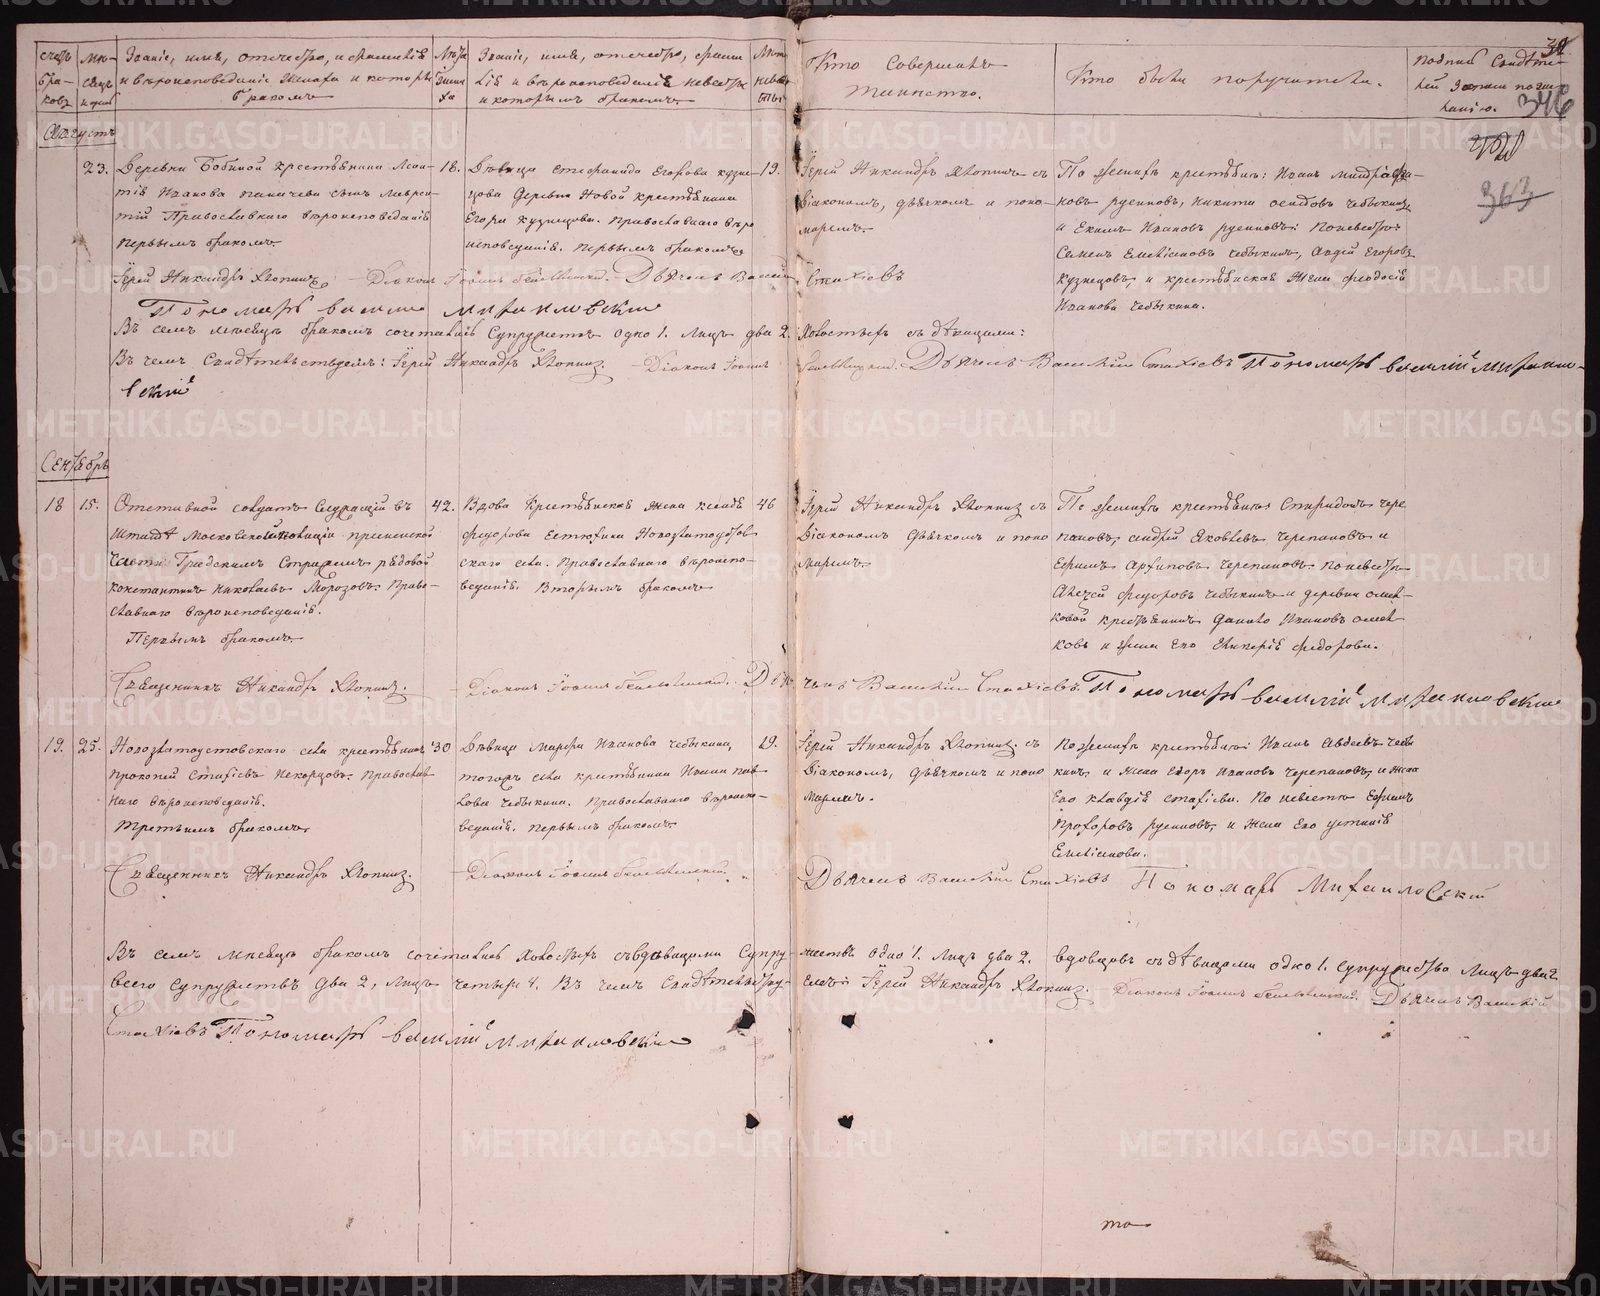 Счетъ браковъ
Мѣсяцъ и день
Званіе, имя, отчество, и фамилія
и вѣроисповѣданіе жениха и которымъ
бракомъ
Лѣта жениха
Званіе, имя, отечество, фамилія
и вѣроисповеданіе невесты
и которымъ бракомъ
Лета невесты
Кто совершалъ
таинство.
Кто были поручители.
346
363
Августъ
23.
Деревни Бобиной крестьянина
Иванова сынъ Лаврен-
тій Православнаго вѣроисповеданія
первымъ бракомъ
18.
Дѣвица Стефанида Егорова кузне-
цова деревни Новой крестьянина
Егора кузнецова. Православнаго вѣро
исповеданія. первымъ бракомъ
19.
Іерей Никандръ Хлопинъ съ
діакономъ, дьячкомъ и поно-
маремъ
По женихѣ крестьяне: Иванъ
ковъ русиновъ, никита осиповъ чебыкинъ
и Екимъ Ивановъ русиновъ: По невестѣ
Семенъ Емельяновъ чебыкинъ, Авдей Егоровъ
кузнецовъ и крестьянская жена феодосія
Иванова чебыкина.
Іерей Никандръ Хлопинъ Діаконъ Іоаннъ Дьячекъ Василій Стахіевъ
Пономарь василій михаиловскій
Въ семъ месяцѣ бракомъ сочетались Супружетвъ одно 1. Лицъ два 2. Холостыхъ съ дѣвицами:
Въ чемъ Свидѣтельствуемъ: Іерей Никандръ Хлопинъ. Діаконъ Іоаннъ Дьячекъ Василій Стахіевъ Пономарь василій михаило-
вскій
Сентябрь
18
15.
Отставной солдатъ Служащій въ
штатѣ Московской полиціи пресненской
части Градскимъ Стражемъ рядовой
константинъ Николаевъ Морозовъ. Право-
славнаго вѣроисповеданія.
Первымъ бракомъ
42.
Вдова Крестьянская жена
федорова Естюгина Новозлатоустов
скаго села. Православнаго вѣроиспо-
веданія. Вторымъ бракомъ
46
Іерей Никандръ Хлопинъ съ
діакономъ дьячкомъ и поно
маремъ.
По женихѣ крестьяне Спиридонъ чере
пановъ, андрей Яковлевъ черепановъ и
Ефимъ Архиповъ черепановъ. По невестѣ
Алексей федоровъ чебыкинъ и деревни омел-
ковой крестьянинъ данило Ивановъ омел
ковъ и жена Его Гликерія федорова.
Священникъ Никандръ Хлопинъ. Діаконъ Іоаннъ Дья
чекъ Василій Стахіевъ. Пономарь василій михаиловскій
19.
25.
Новозлатоустовскаго села крестьянинъ
прокопей Стахіевъ Некорцовъ. Православ
наго вѣроисповеданія.
третьимъ бракомъ
30
Дѣвица марфа Иванова чебыкина,
тогожъ села крестьянина Ивана пав
лова чебыкина. Православнаго вѣроиспо-
веданія. первымъ бракомъ
19.
Іерей Никандръ Хлопинъ съ
діакономъ, дьячкомъ и поно
маремъ.
По женихѣ крестьяне: Иванъ Авдеевъ чебы
кинъ, и жена Егоръ Ивановъ черепановъ, и жена
Его клавдія стахіева. По невестѣ Ефимъ
Прохоровъ русиновъ, и жена Его устинія
Емельянова.
Священникъ Никандръ Хлопинъ. Діаконъ Іоаннъ
Дьячекъ Василій Стахіевъ Пономарь Михаиловскій
Въ семъ месяцѣ бракомъ сочетались Холостыхъ съ вдовицами Супру-
жествъ одно 1. Лицъ два 2. вдовцовъ съ дѣвицами одно 1. супружество лицъ два 2
всего супружествъ два 2, лицъ четыре 4. Въ чемъ Свидѣтельству-
емъ: Іерей Никандръ Хлопинъ. Діаконъ Іоаннъ Дьячекъ Василій
Стахіевъ Пономарь василій михаиловскій
то
METRIKI.GASO-URAL.RU